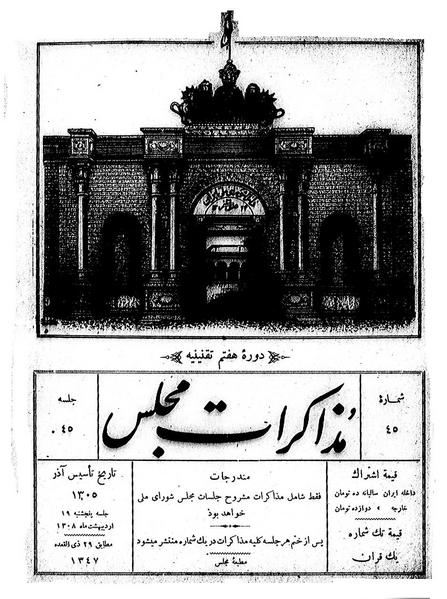 دورهٔ هفتم تقنینیه
شمارهٔ
۴۵
مذاکرات مجلس
جلسه
۴۵
قیمة اشتراک
داخله ایران سالیانه ده تومان
خارجه » دوازده تومان
قیمة تک شماره
یک قران
مندرجات
فقط شامل مذاکرات مشروح جلسات مجلس شورای ملی
خواهد بود
پس از ختم هر جلسه کلیه مذاکرات در یک شماره منتشر میشود
مطبعهٔ مجلس
تاریخ تأسیس آذر
۱۳۰۵
جلسه پنجشنبه ۱۹
اردیبهشت ماه ۱۳۰۸
مطابق ۲۹ ذی القعده
۱۳۴۷